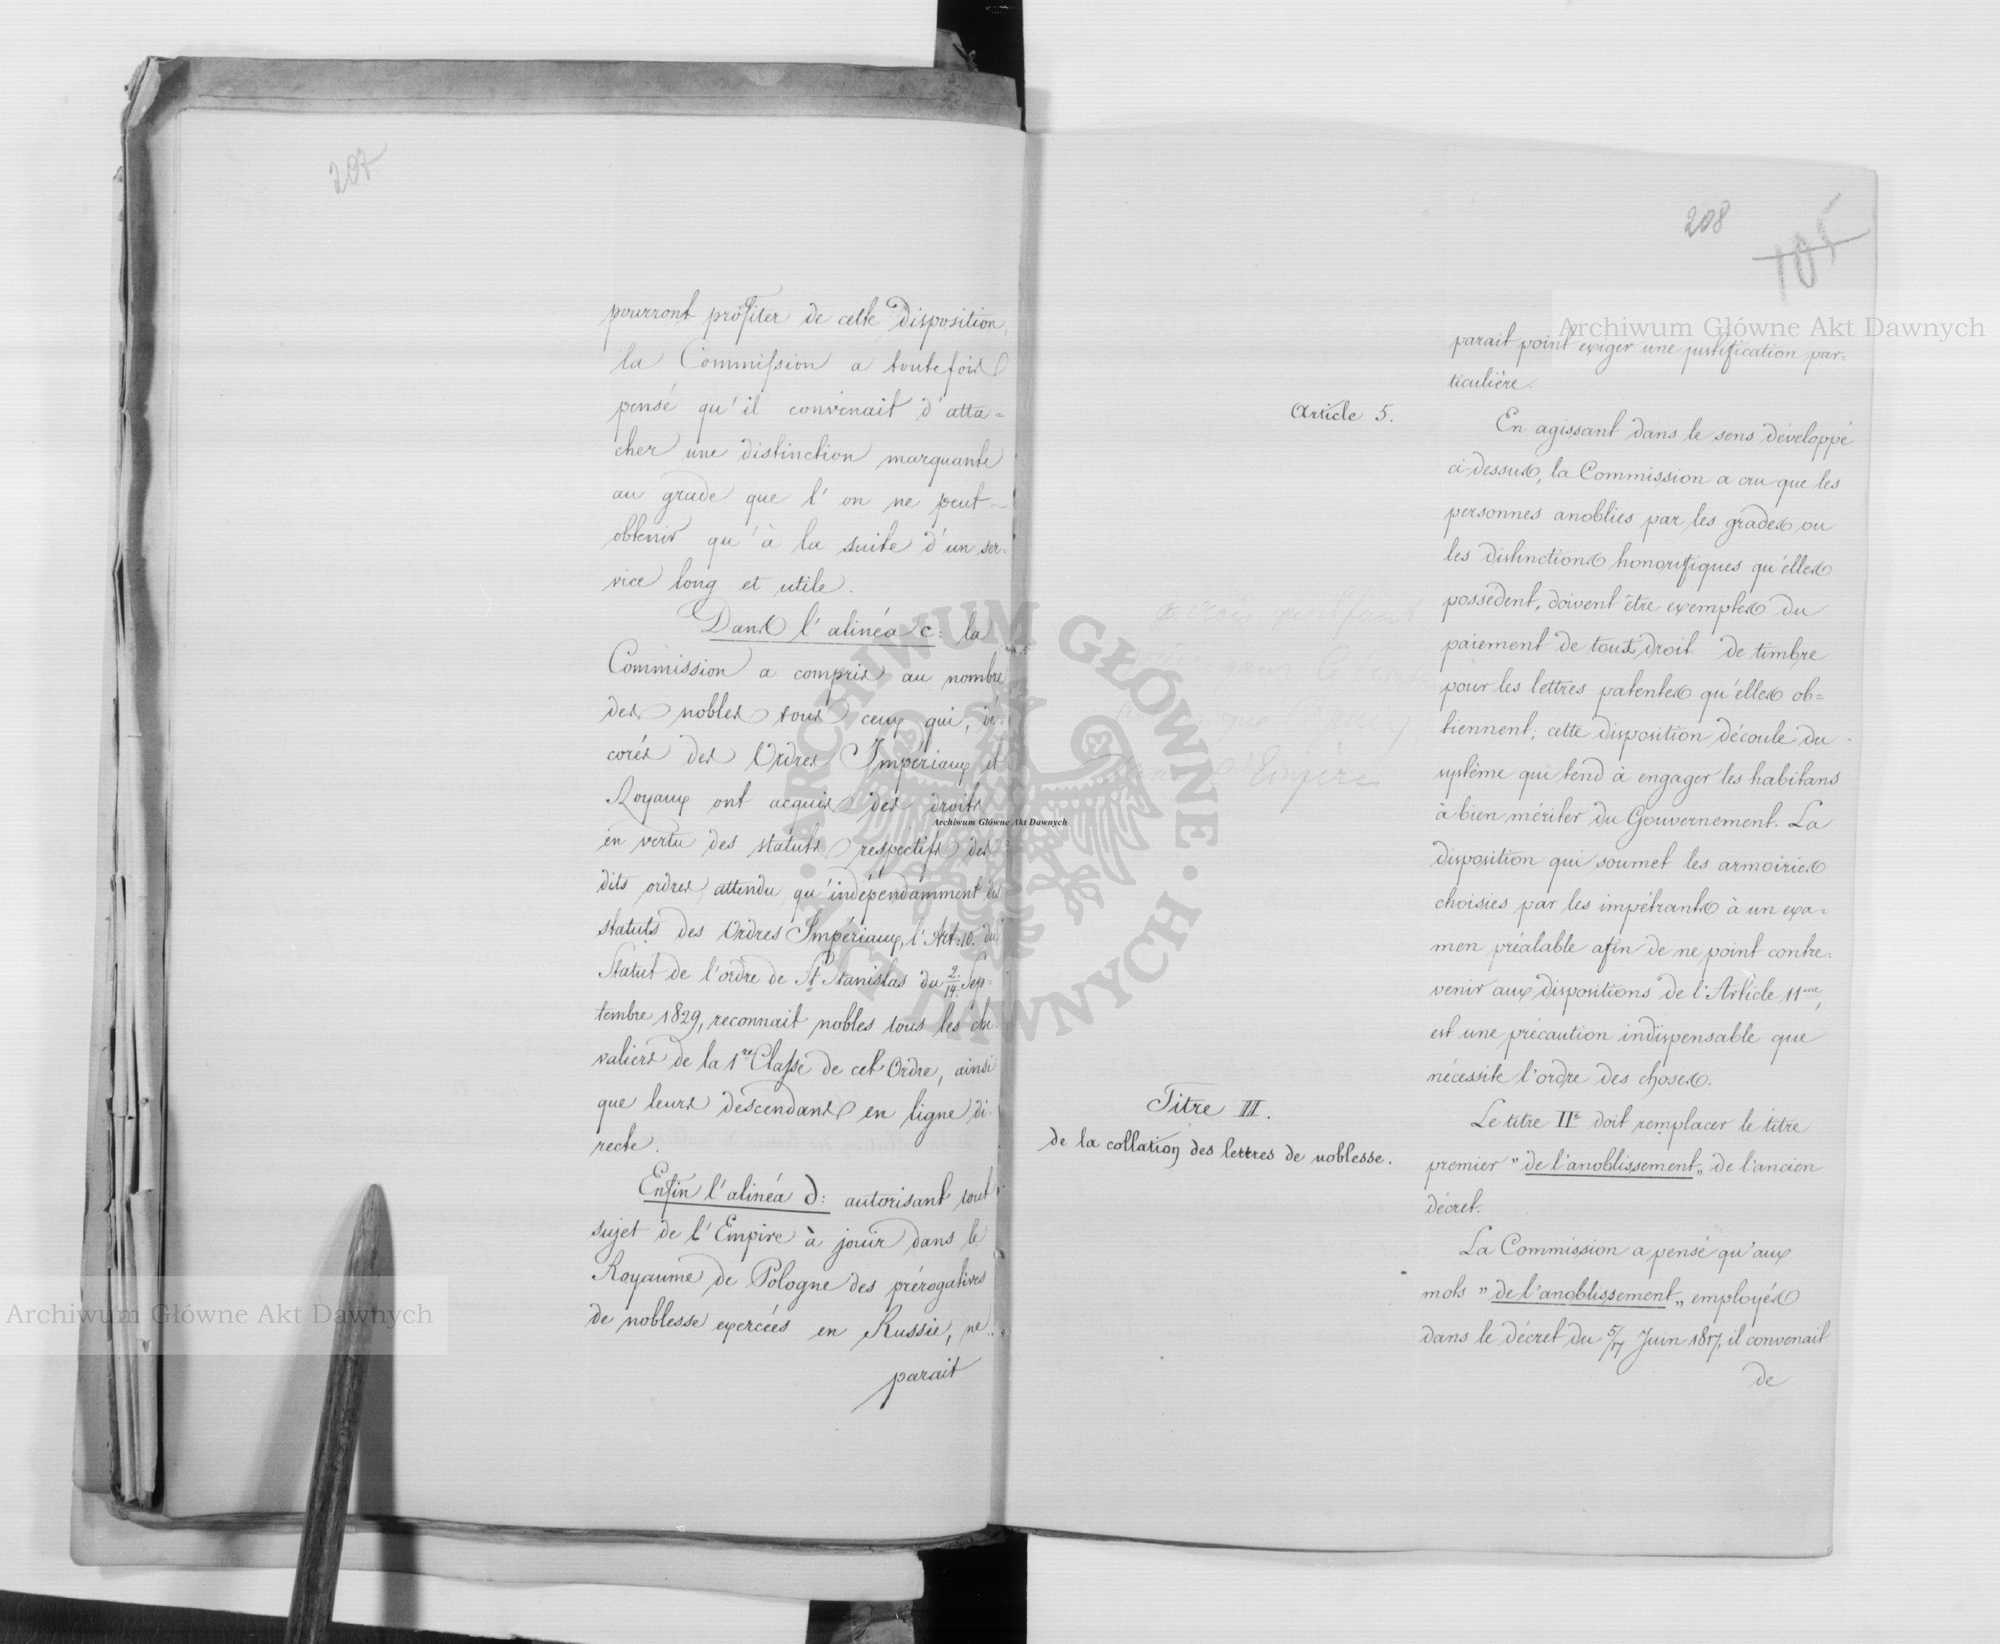 207
pourront profiter de cette disposition,
la Commission a toutefois
pensé qu'il convenait d'atta=
cher une distinction marquante
au grade que l'on ne peut
obtenir qu'à la suite d'un ser=
vice long et utile.
Dans l'alinéa c: la
Commission a compris au nombre
des nobles tous ceux qui, dé=
corés des Ordres Impériaux et
Royaux ont acquis des droits
en vertu des statuts respectifs des
dits ordres, attendu qu'indépendamment des
statuts des Ordres Impériaux, l'Art: 10. du
Statut de l'ordre de St Stanislas du 2/14. Sep=
tembre 1829, reconnait nobles tous les che=
valiers de la 1re Classe de cet Ordre, ainsi
que leurs descendans en ligne di=
recte.
Enfin l'alinéa d: autorisant tout
sujet de l'Empire à jouir dans le
Royaume de Pologne des prérogatives
de noblesse exercées en Russie, ne
parait
208
105
parait point exiger une justification par=
ticulière.
Article 5.
En agissant dans le sens développé
ci-dessus, la Commission a cru que les
personnes anoblies par les grades ou
les distinctions honorifiques qu'elles
possèdent, doivent être exemptes du
paiement de tout droit de timbre
pour les lettres patentes qu'elles ob=
tiennent; cette disposition découle du
système qui tend à engager les habitans
à bien mériter du Gouvernement. La
disposition qui soumet les armoiries
choisies par les impétrants à un exa=
men préalable afin de ne point contre=
venir aux dispositions de l'Article 11me,
est une précaution indispensable que
nécessite l'ordre des choses.
Titre II.
de la collation des lettres de noblesse.
Le titre IIe doit remplacer le titre
premier "de l'anoblissement" de l'ancien
décret.
La Commission a pensé qu'aux
mots "de l'anoblissement" employés
dans le décret du 5/17 Juin 1817, il convenait
de
Archiwum Główne Akt Dawnych
Archiwum Główne Akt Dawnych
Archiwum Główne Akt Dawnych
ARCHIWUM GŁÓWNE AKT DAWNYCH